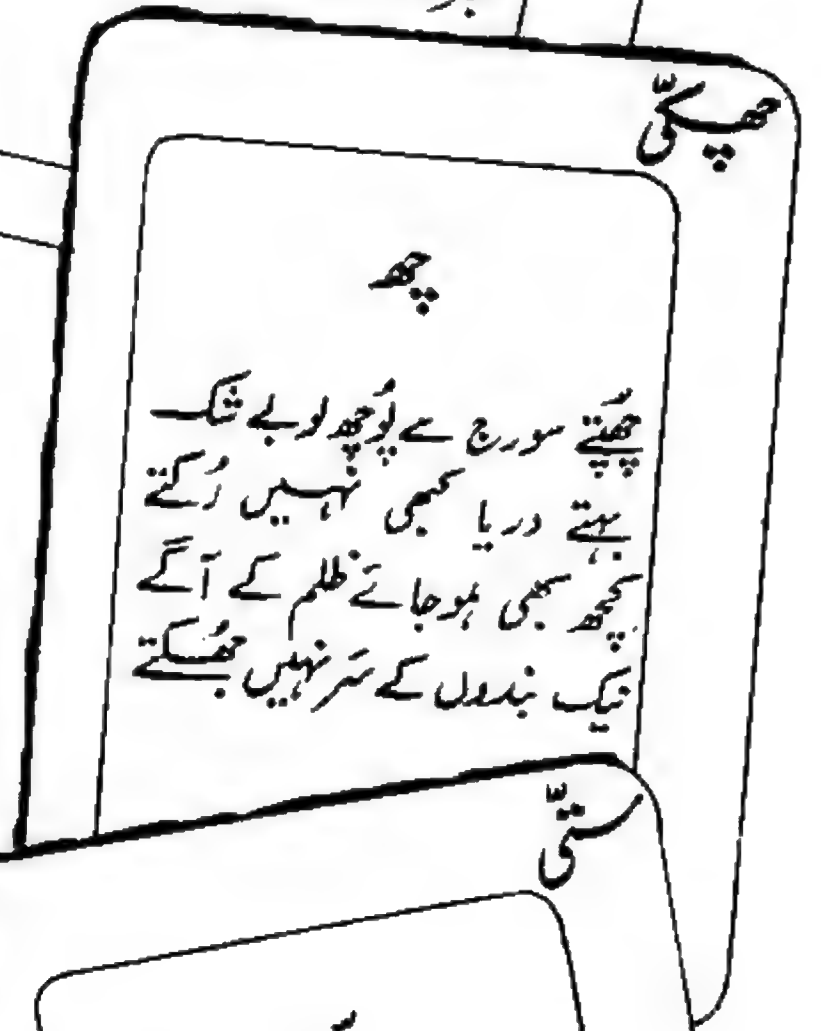 چھکّی
چھ
چُھپتے سورج سے پُوچھ لو بے شک
بہتے دریا کبھی نہیں رُکتے
کچھ بھی ہو جائے ظلم کے آگے
نیک بندوں کے سَر نہیں جُھکتے
ستّی